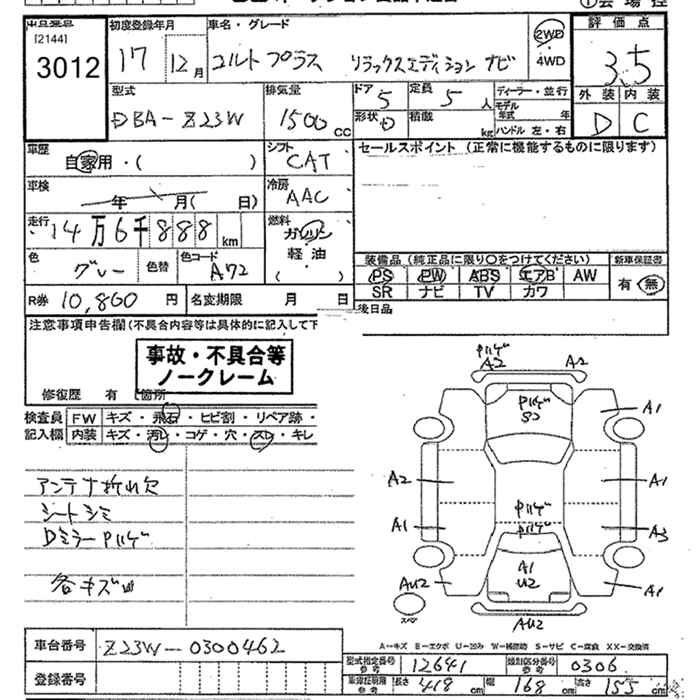 ① 会場控
[2144]
3012
初度登録年月
車名・グレード
17 12月
コルトプラス リラックスエディション ナビ
2WD
・
4WD
評価点
3.5
外装 内装
D C
型式
DBA-Z23W
排気量
1500 cc
ドア 5
定員 5 人
形状 D
積載 kg
ディーラー・並行
モデル年式 年
ハンドル 左・右
車歴
自家用・( )
シフト
CAT
セールスポイント (正常に機能するものに限ります)
車検
年 月( 日)
冷房
AAC
走行
14万6千888 km
燃料
ガソリン
軽油
( )
色
グレー
色替
色コード
A72
装備品 (純正品に限り○をつけてください)
新車保証書
PS PW ABS エアB AW
SR ナビ TV カワ
有・無
R券 10,860 円
名変期限 月 日
後日品
注意事項申告欄(不具合内容等は具体的に記入して下
事故・不具合等
ノークレーム
修復歴 有 箇所
検査員
記入欄
FW キズ・飛石・ヒビ割・リペア跡・
内装 キズ・汚レ・コゲ・穴・スレ・キレ
アンテナ折れ欠
シートシミ
Dミラー Pハゲ
各キズ凹
Pハゲ
A2 A2
Pハゲ
A1
A2
A1
Pハゲ
Pハゲ
A1
A3
AU2
A1
U2
A1
スペア
AU2
A-キズ E-エクボ U-凹み W-補修跡 S-サビ C-腐食 XX-交換済
車台番号 Z23W-0300462
登録番号
型式指定番号 参考 12641
類別区分番号 参考 0306
車庫証明用 参考 長さ 418 cm 幅 168 cm 高さ 155 cm